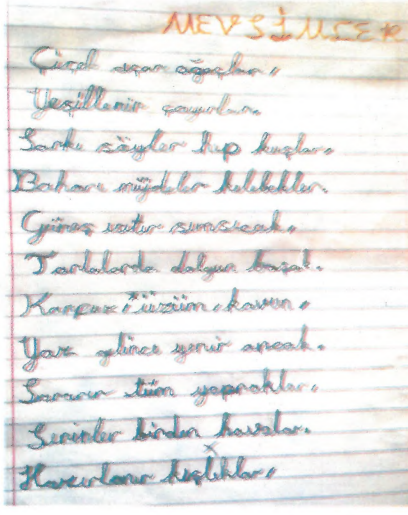 MEVSİMLER
Çiçek açar ağaçlar,
Yeşillenir çayırlar.
Şarkı söyler hep kuşlar,
Baharı müjdeler kelebekler.
Güneş ısıtır sımsıcak,
Tarlalarda dalgın başak.
Karpuz, üzüm, kavun,
Yaz gelince yenir ancak.
Sararır tüm yapraklar,
Serinler birden havalar.
Hazırlanır kışlıklar,